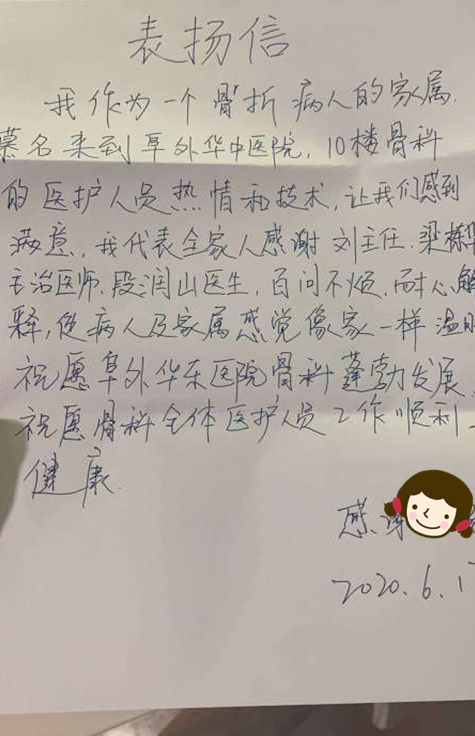 表扬信
我作为一个骨折病人的家属.
慕名来到阜外华中医院,10楼骨科
的医护人员热情和技术,让我们感到
满意.我代表全家人感谢刘主任.梁
主治医师.段润山医生,百问不烦.耐心解
释,使病人及家属感觉像家一样温
祝愿阜外华东医院骨科蓬勃发展.
祝愿骨科全体医护人员工作顺利
健康.
感谢
2020.6.1